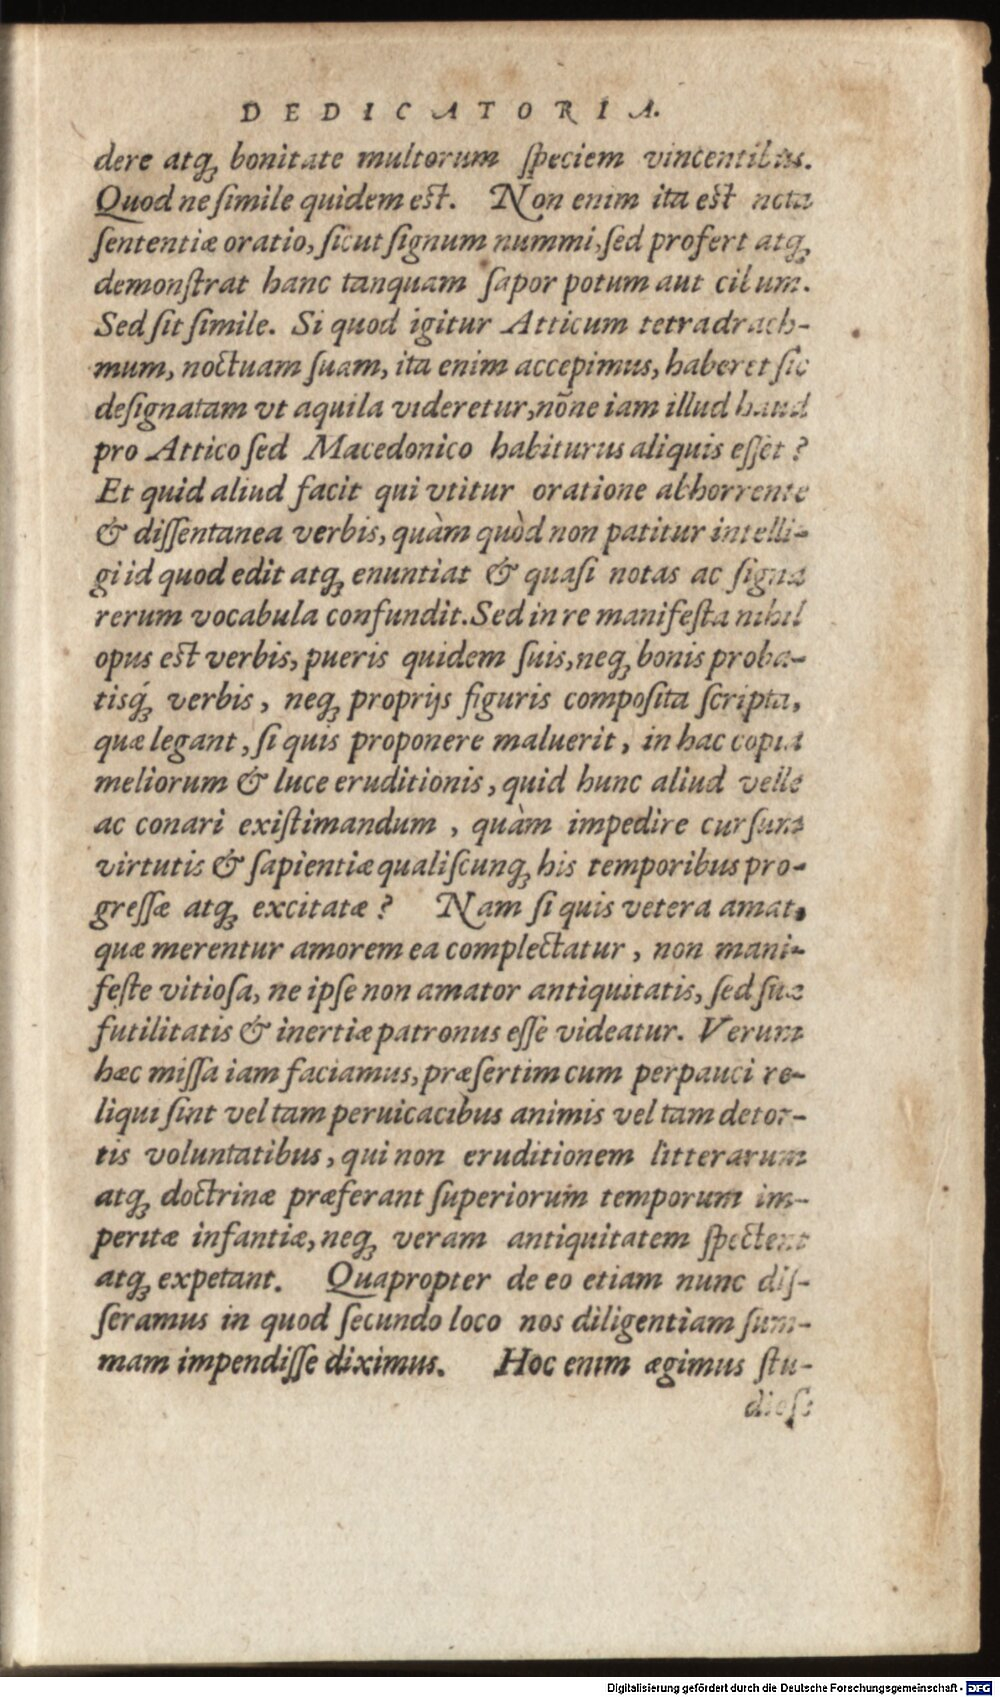 DEDICATORIA.
dere atq; bonitate multorum ſpeciem vincentibus.
Quod ne ſimile quidem eſt. Non enim ita eſt nota
ſententiæ oratio, ſicut ſignum nummi, ſed profert atq;
demonſtrat hanc tanquam ſapor potum aut cibum.
Sed ſit ſimile. Si quod igitur Atticum tetradrach-
mum, noctuam ſuam, ita enim accepimus, haberet ſic
deſignatam vt aquila videretur, nõne iam illud haud
pro Attico ſed Macedonico habiturus aliquis eſſet?
Et quid aliud facit qui vtitur oratione abhorrente
& diſſentanea verbis, quàm quòd non patitur intelli-
gi id quod edit atq; enuntiat & quaſi notas ac ſigna
rerum vocabula confundit. Sed in re manifeſta nihil
opus eſt verbis, pueris quidem ſuis, neq; bonis proba-
tisq́; verbis, neq; proprijs figuris compoſita ſcripta,
quæ legant, ſi quis proponere maluerit, in hac copia
meliorum & luce eruditionis, quid hunc aliud velle
ac conari exiſtimandum, quàm impedire curſum
virtutis & ſapientiæ qualiſcunq; his temporibus pro-
greſſæ atq; excitatæ? Nam ſi quis vetera amat,
quæ merentur amorem ea complectatur, non mani-
feſte vitioſa, ne ipſe non amator antiquitatis, ſed ſuæ
futilitatis & inertiæ patronus eſſe videatur. Verum
hæc miſſa iam faciamus, præſertim cum perpauci re-
liqui ſint vel tam peruicacibus animis vel tam detor-
tis voluntatibus, qui non eruditionem litterarum
atq; doctrinæ præferant ſuperiorum temporum im-
peritæ infantiæ, neq; veram antiquitatem ſpectent
atq; expetant. Quapropter de eo etiam nunc diſ-
ſeramus in quod ſecundo loco nos diligentiam ſum-
mam impendiſſe diximus. Hoc enim ægimus ſtu-
dioſe
Digitalisierung gefördert durch die Deutsche Forschungsgemeinschaft - DFG